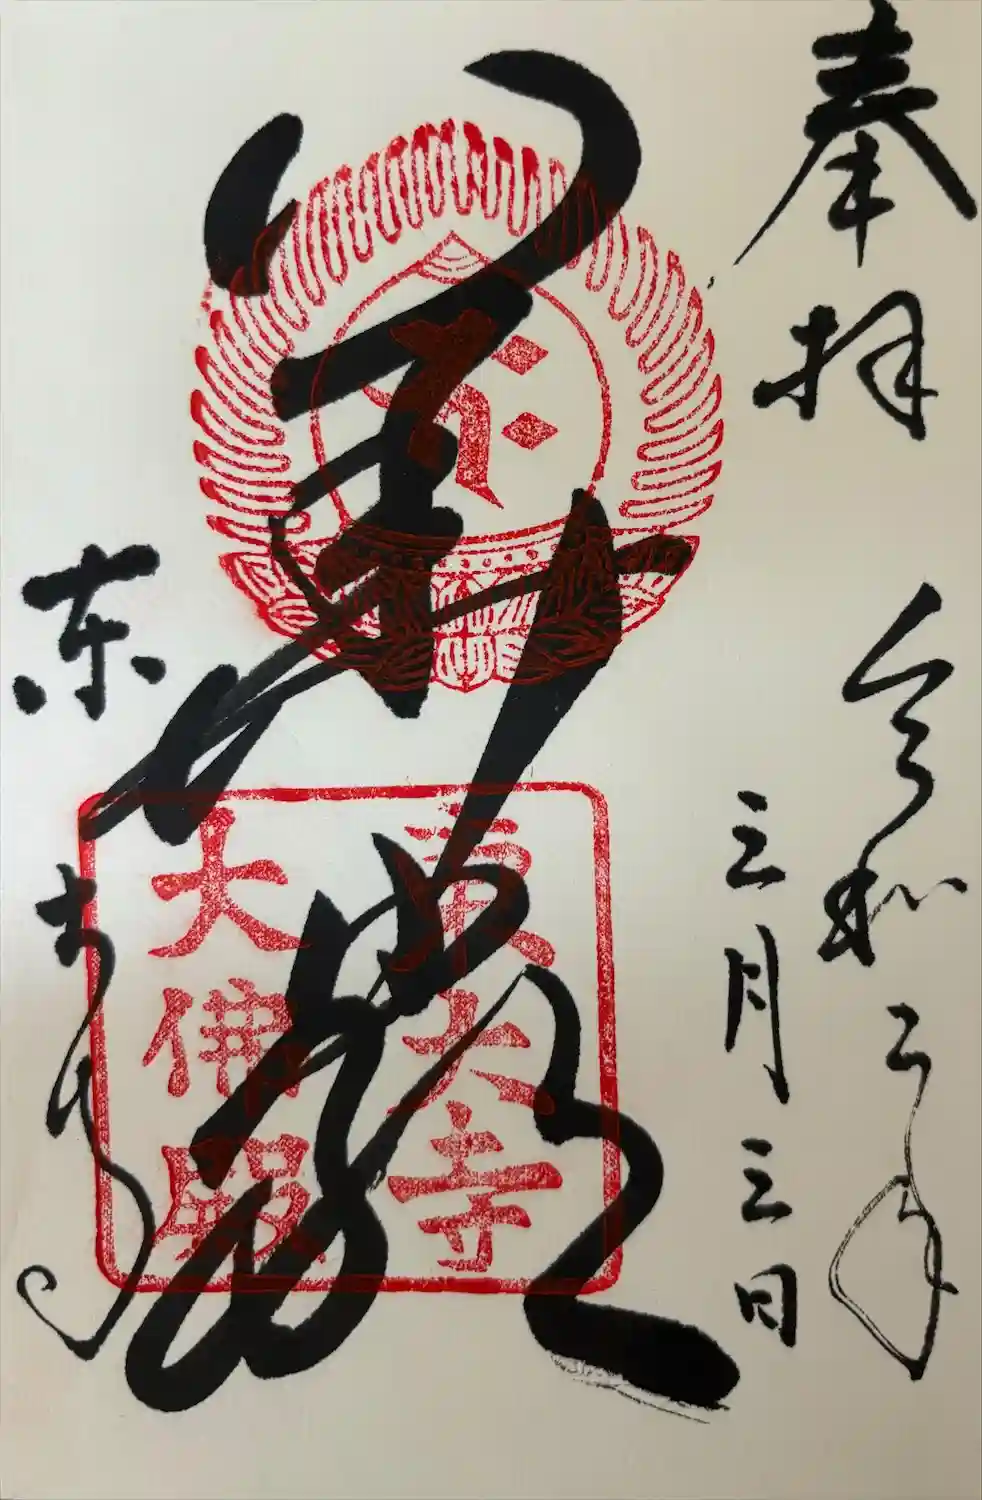 奉拝
令和二年
三月三日
華嚴
東大寺
東大寺
大佛殿